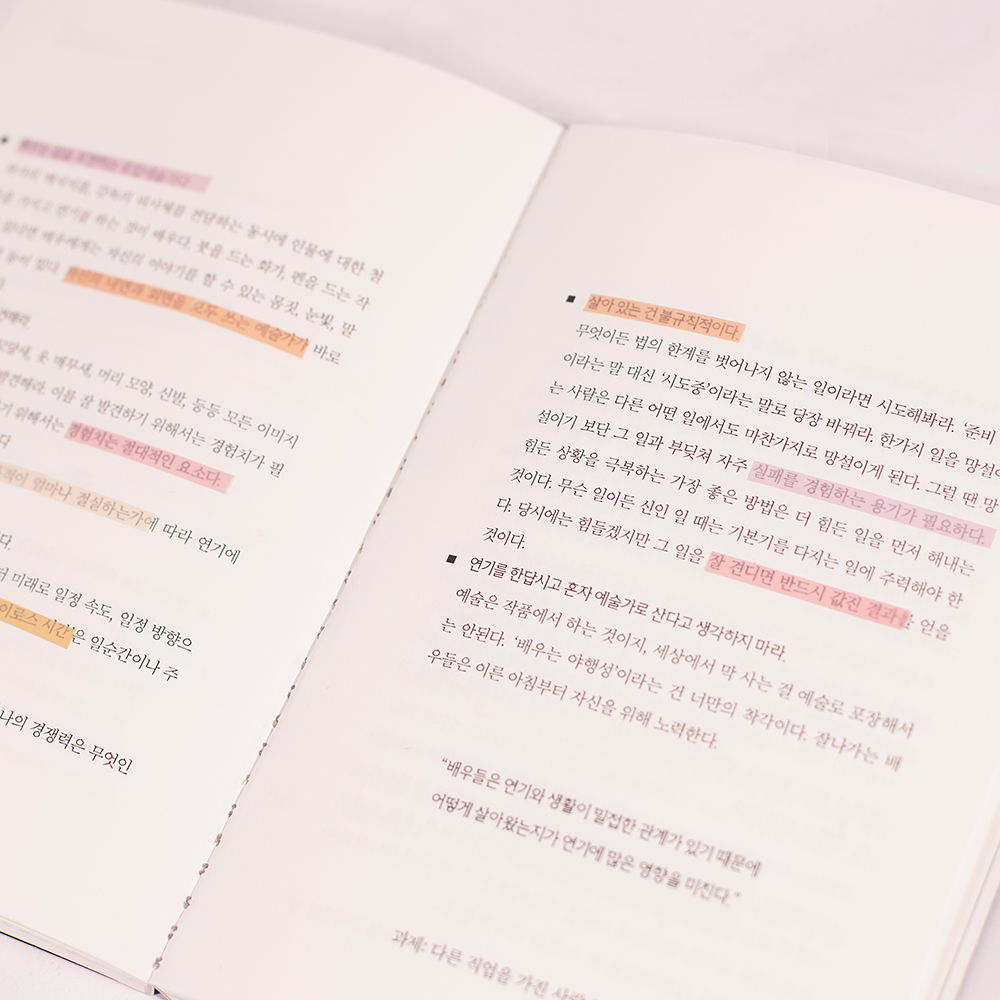 작가의 메시지를, 감독의 미장센을 전달하는 동시에 인물에 대한 철
가지고 연기를 하는 것이 배우다. 붓을 드는 화가, 펜을 드는 작
있다면 배우에게는 자신의 이야기를 할 수 있는 몸짓, 눈빛, 말
등이 있다. 자신의 내면과 외면을 모두 쓰는 예술가가 바로
옷 매무새, 머리 모양, 신발, 등등 모든 이미지
발견해라. 이를 잘 발견하기 위해서는 경험치가 필
위해서는 경험치는 절대적인 요소다.
얼마나 절실하는가에 따라 연기에
다.
미래로 일정 속도, 일정 방향으
시간'은 일순간이나 주
나의 경쟁력은 무엇인
■ 살아 있는 건 불규칙적이다.
무엇이든 법의 한계를 벗어나지 않는 일이라면 시도해봐라. '준비
이라는 말 대신 '시도중'이라는 말로 당장 바꿔라. 한가지 일을 망설이
는 사람은 다른 어떤 일에서도 마찬가지로 망설이게 된다. 그럴 땐 망
설이기 보단 그 일과 부딪쳐 자주 실패를 경험하는 용기가 필요하다.
힘든 상황을 극복하는 가장 좋은 방법은 더 힘든 일을 먼저 해내는
것이다. 무슨 일이든 신인 일 때는 기본기를 다지는 일에 주력해야 한
다. 당시에는 힘들겠지만 그 일을 잘 견디면 반드시 값진 결과를 얻을
것이다.
■ 연기를 한답시고 혼자 예술가로 산다고 생각하지 마라.
예술은 작품에서 하는 것이지, 세상에서 막 사는 걸 예술로 포장해서
는 안된다. '배우는 야행성'이라는 건 너만의 착각이다. 잘나가는 배
우들은 이른 아침부터 자신을 위해 노력한다.
"배우들은 연기와 생활이 밀접한 관계가 있기 때문에
어떻게 살아왔는지가 연기에 많은 영향을 미친다."
과제: 다른 직업을 가진 사람